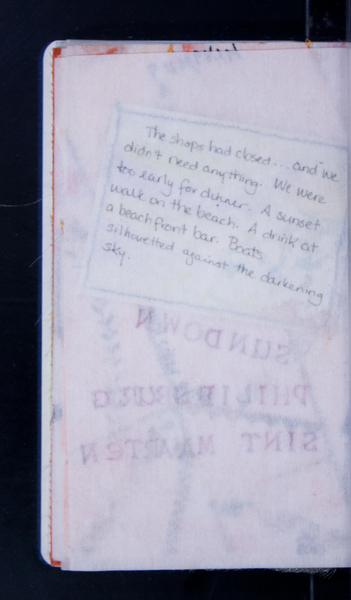 The shops had closed... and we
didn't need anything. We were
too early for dinner. A sunset
walk on the beach. A drink at
a beachfront bar. Boats
silhouetted against the darkening
sky.
SUNDOWN
PHILIPSBURG
SINT MAARTEN